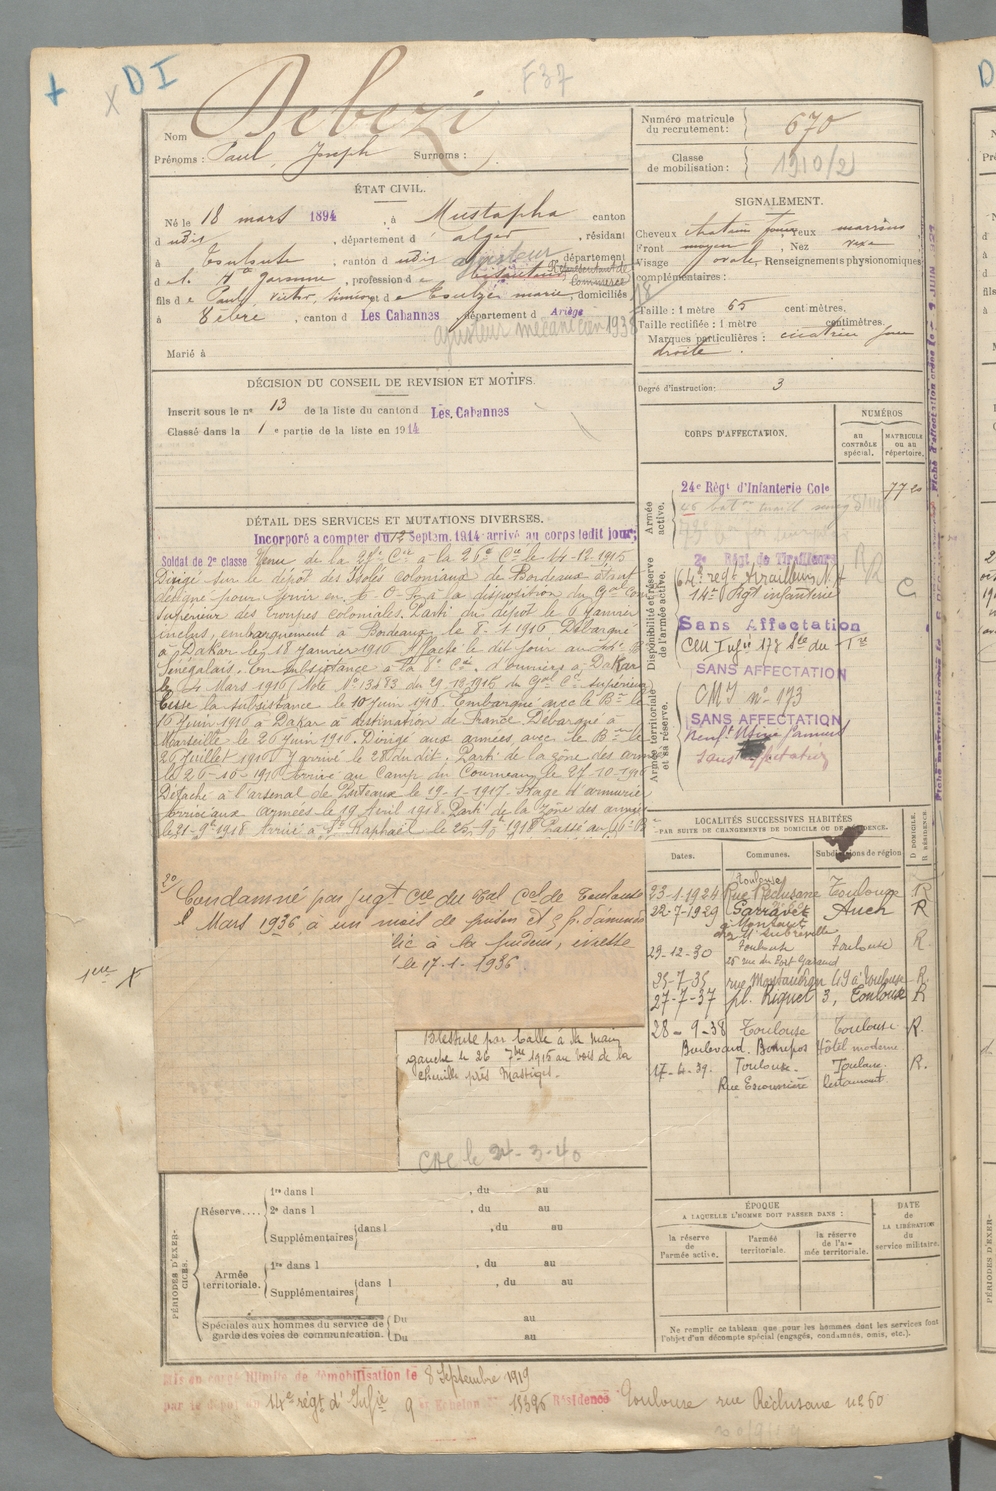 + X DI F37
Nom Debezi
Prénoms : Paul, Joseph Surnoms :
Numéro matricule du recrutement : 670
Classe de mobilisation : 1910/2
ÉTAT CIVIL.
Né le 18 mars 1894, à Mustapha canton
d udis, département d alger, résidant
à Toulouse, canton d udis département
d , profession de
fils de Paul, Victor, et de marie, domiciliés
à canton d Les Cabannes, département d Ariège
ajusteur mécanicien 1938
Marié à
SIGNALEMENT.
Cheveux chatain Yeux marrons
Front moyen, Nez
Visage ovale, Renseignements physionomiques
complémentaires :
Taille : 1 mètre 65 centimètres.
Taille rectifiée : 1 mètre centimètres.
Marques particulières : cicatrice joue
droite.
Degré d'instruction : 3
DÉCISION DU CONSEIL DE REVISION ET MOTIFS.
Inscrit sous le n° 13 de la liste du canton d Les Cabannes
Classé dans la 1e partie de la liste en 1914
CORPS D'AFFECTATION.
NUMÉROS
au CONTRÔLE spécial.
MATRICULE ou au répertoire.
Armée active.
24e Régt d'Infanterie Cole 7720
Disponibilité et réserve de l'armée active.
2e Régt de Tirailleurs
14e Rgt infanterie
Sans Affectation
SANS AFFECTATION
Armée territoriale et sa réserve.
CMI n° 193
SANS AFFECTATION
sans affectation
DÉTAIL DES SERVICES ET MUTATIONS DIVERSES.
Incorporé à compter du 12 Septem. 1914 arrivé au corps ledit jour;
Soldat de 2e classe Venu de la 25e Cie à la 26e Cie le 14-12-1915
Dirigé sur le dépôt des Isolés coloniaux de Bordeaux étant
désigné pour servir en A.O.F. à la disposition du Gal Com
supérieur des troupes coloniales. Parti du dépôt le 6 janvier
inclus, embarquement à Bordeaux le 8.1.1916. Débarqué
à Dakar le 18 janvier 1916. Affecté le dit jour au
Sénégalais. En subsistance à la 8e Cie d'ouvriers à Dakar
le 4 Mars 1916 (Note N° 13483 du 29-10-1915 du Gal Ct supérieur)
Cesse la subsistance le 10 juin 1916. Embarqué avec le Bon le
16 Juin 1916 à Dakar à destination de France. Débarqué à
Marseille le 26 juin 1916. Dirigé aux armées avec le Bon le
26 Juillet 1916 y arrivé le 28 du dit. Parti de la zone des armées
le 26-10-1916 arrivé au Camp du Courneau le 27-10-1916
Détaché à l'arsenal de Puteaux le 19-1-1917. Stage d'armurerie
armées le 19 Avril 1918. Parti de la zone des armées
le 21-9bre 1918 Arrivé à St Raphaël le 25-9bre 1918 Passé au
2° Condamné par jugt Cre du tal Cel de Toulouse
Mars 1936 à un mois de prison et 5 f. d'amende
à la pudeur, ivresse
le 17-1-1936
1ere X
Blessure par balle à la main
gauche le 26 7bre 1915 au bois de la
Chenille près Massiges.
CAC le 24-3-40
LOCALITÉS SUCCESSIVES HABITÉES
PAR SUITE DE CHANGEMENTS DE DOMICILE OU DE RÉSIDENCE.
Dates. Communes. Subdivisions de région D DOMICILE. R RÉSIDENCE
23-1-1924 Toulouse Rue Réclusane Toulouse R
22-7-1929 Garravet Auch R
29-12-30 Toulouse Toulouse R
25 rue du Port Garaud
25-7-35 rue Montaudran 49 à Toulouse R
27-7-37 pl. Riquet 3, Toulouse R
28-9-38 Toulouse Toulouse R.
Boulevard Bonrepos Hôtel moderne
17-4-39. Toulouse. Toulouse. R.
Restaurant
PÉRIODES D'EXERCICES.
Réserve....
1re dans l , du au
2e dans l , du au
Supplémentaires dans l , du au
Armée territoriale.
1re dans l , du au
Supplémentaires dans l , du au
Spéciales aux hommes du service de garde des voies de communication.
Du au
Du au
ÉPOQUE
A LAQUELLE L'HOMME DOIT PASSER DANS :
la réserve de l'armée active.
l'armée territoriale.
la réserve de l'armée territoriale.
DATE de LA LIBÉRATION du service militaire.
Ne remplir ce tableau que pour les hommes dont les services font
l'objet d'un décompte spécial (engagés, condamnés, omis, etc.).
Mis en congé illimité de démobilisation le 8 Septembre 1919
par le dépôt du 14e régt d'Infie 9e Echelon N° 15396 Résidence Toulouse rue Réclusane n° 60